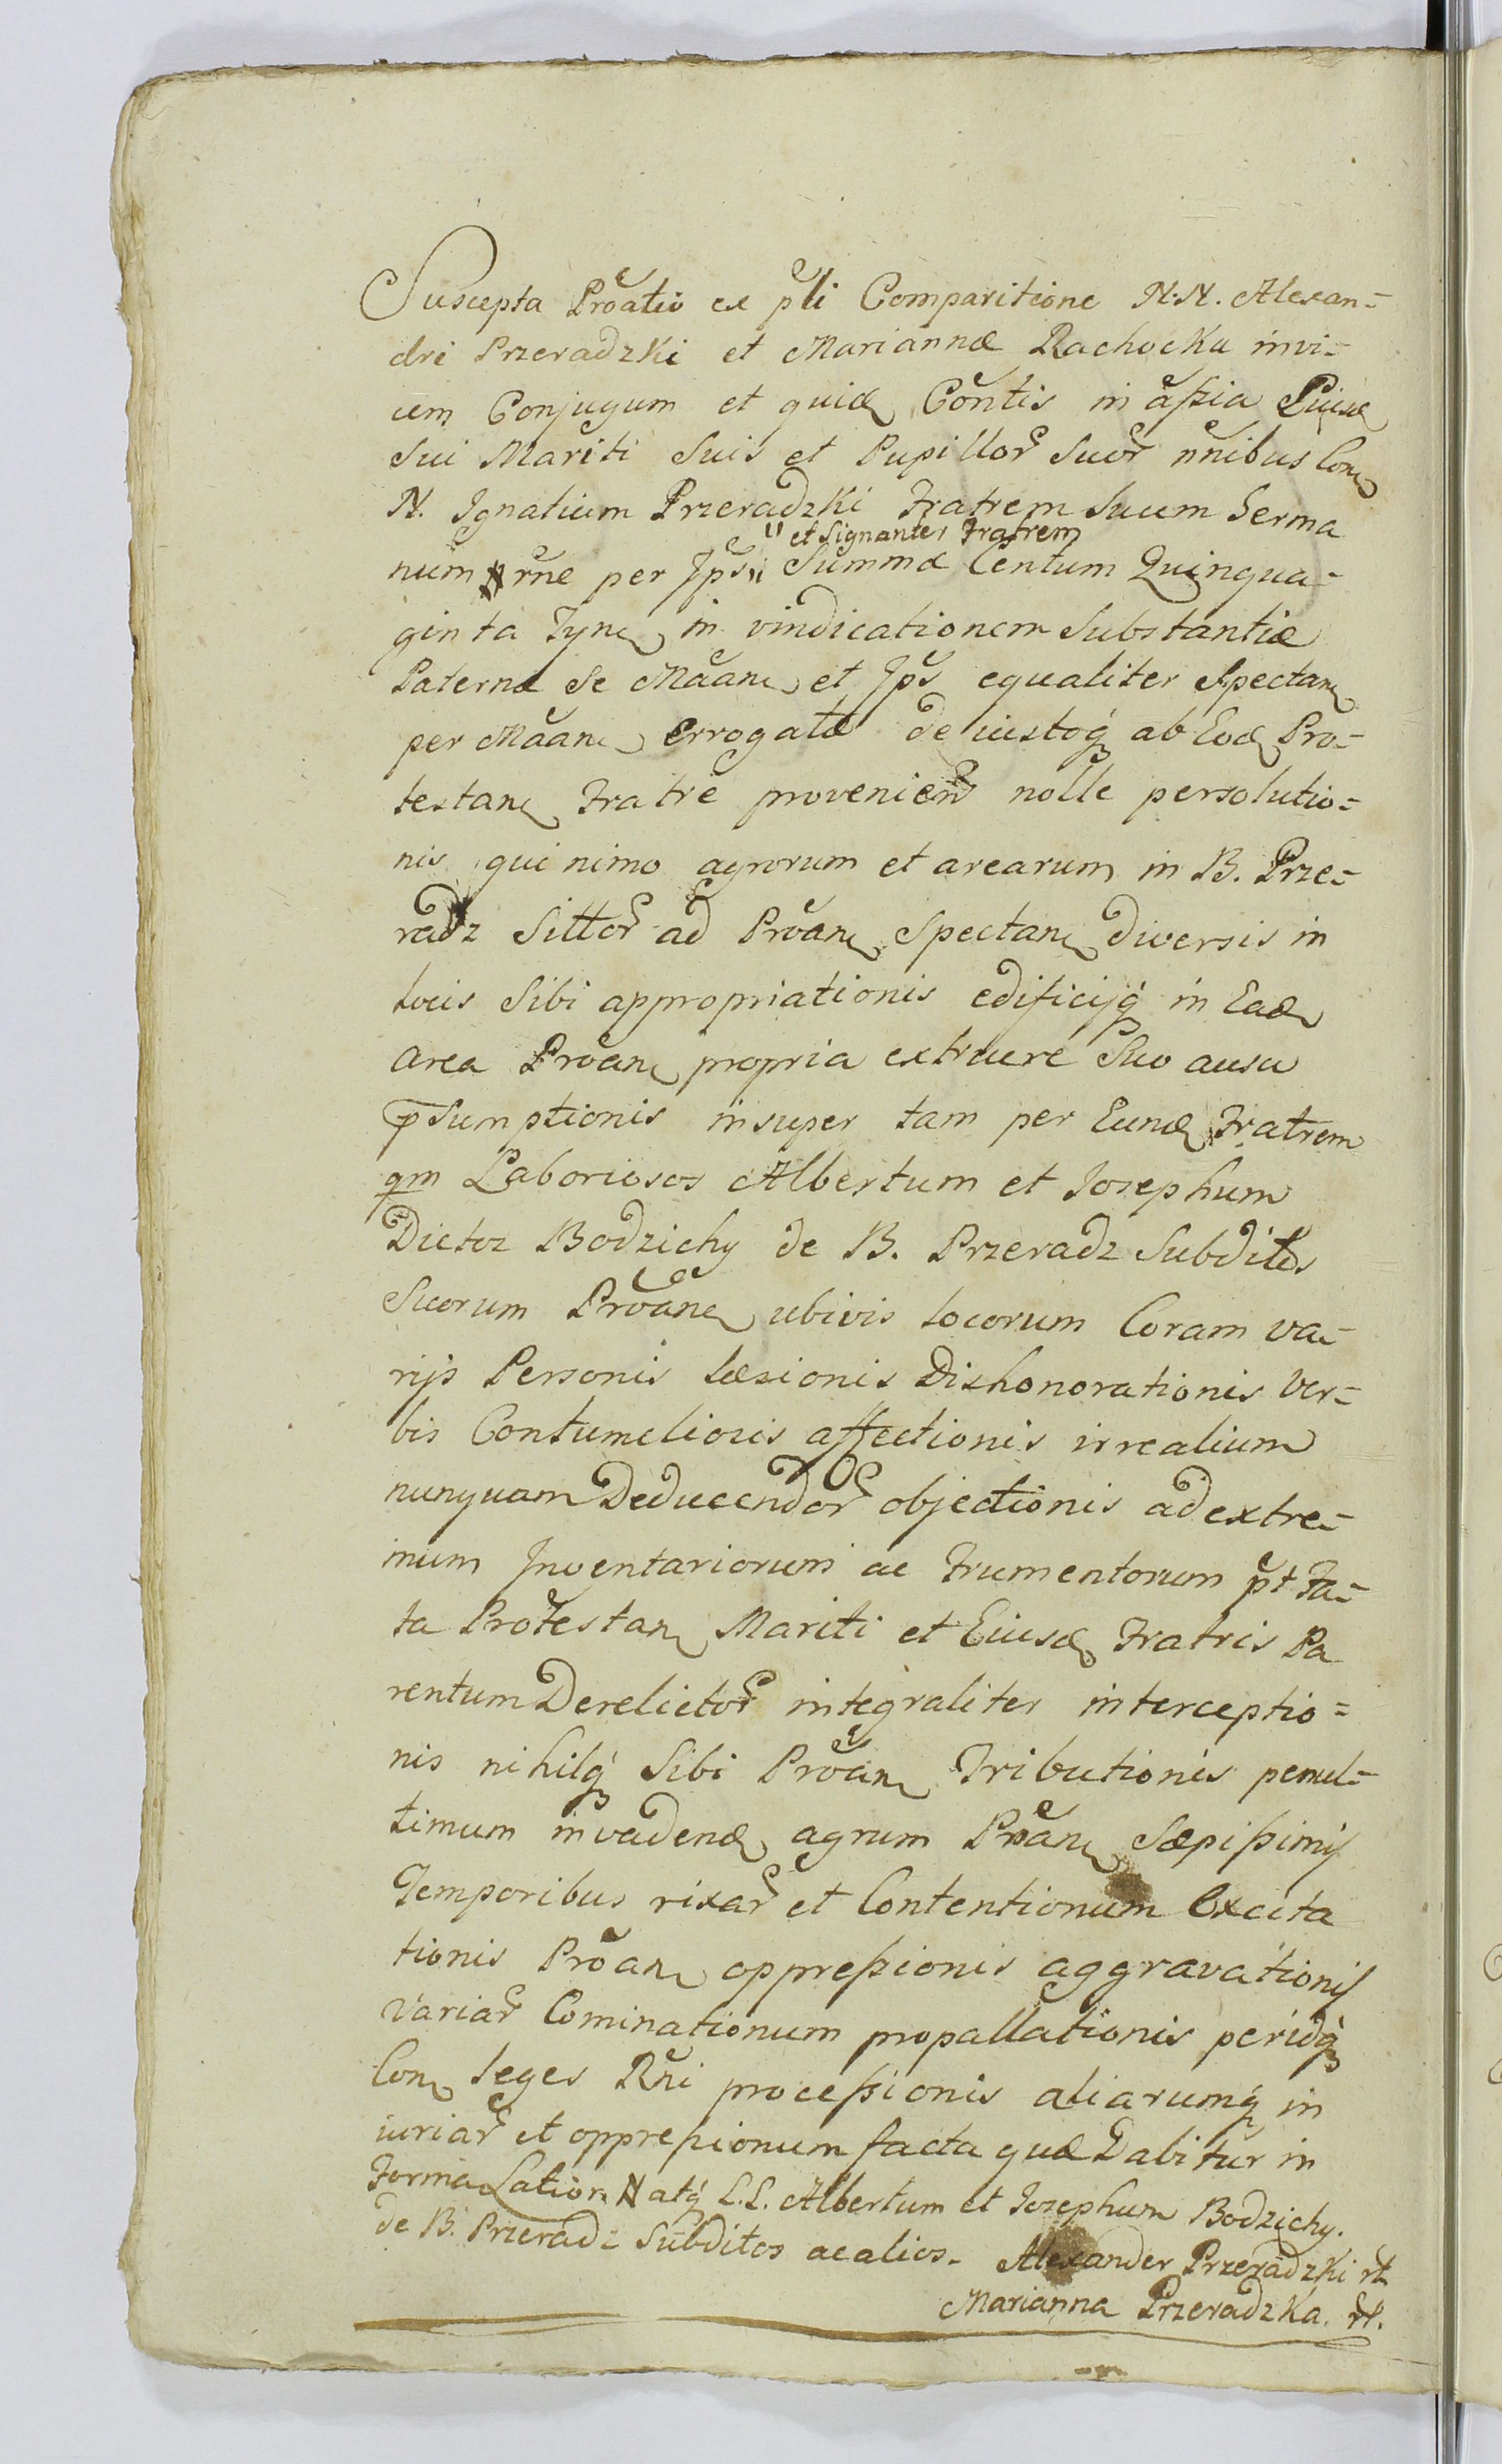 Suscepta Prõatio ex p̃ti Comparitione N.N. Alexan=
dri Przeradzki et Mariannæ Rachocka invi=
cem Conjugum et quid Cõntis in aßia Eiusd
sui Mariti suis et Pupillor suor nñibus Con
N. Ignatium Przeradzki Fratrem suum Germa
num rñe per Jps " et signanter Fratrem
" Summæ Centum Quinqua=
ginta Tyn in vindicationem substantiæ
Paternæ se Mãan et Jps equaliter spectan
per Mãan errogatæ de iustoq ab Eod Pro=
testan Fratre provenien nolle persolutio=
nis quinimo agrorum et arearum in B. Prze=
radz sittor ad Prõan spectan diversis in
locis sibi appropriationis edificijq in Ead
area Prõan propria extruere suo ausu
p̄sumptionis insuper tam per Eund Fratrem
qm Laboriosos Albertum et Josephum
Dictos Bodzichy de B. Przeradz Subditos
suorum Prõan ubivis locorum Coram va=
rijs Personis læsionis Dishonorationis ver=
bis Contumeliosis affectionis irrealium
nunquam Deducendor objectionis ad extre=
mum Inventariorum ac Frumentorum p̃t Fa=
ta Protestan Mariti et Eiusd Fratris Pa
rentum Derelictor integraliter interceptio=
nis nihilq sibi Prõan Tributionis penul=
timum invadend agrum Prõan sæpißimis
Temporibus rixar et Contentionum Excita
tionis Prõan oppreßionis aggravationis
variar Cominationum propallationis peridq
Con leges Rñi proceßionis aliarumq in
iuriar et oppreßionum facta quæ Dabitur in
Forma Latiori N atq L.L. Albertum et Josephum Bodzichy.
de B. Przeradz Subditos ac alios. Alexander Przeradzki
Marianna Przeradzka.